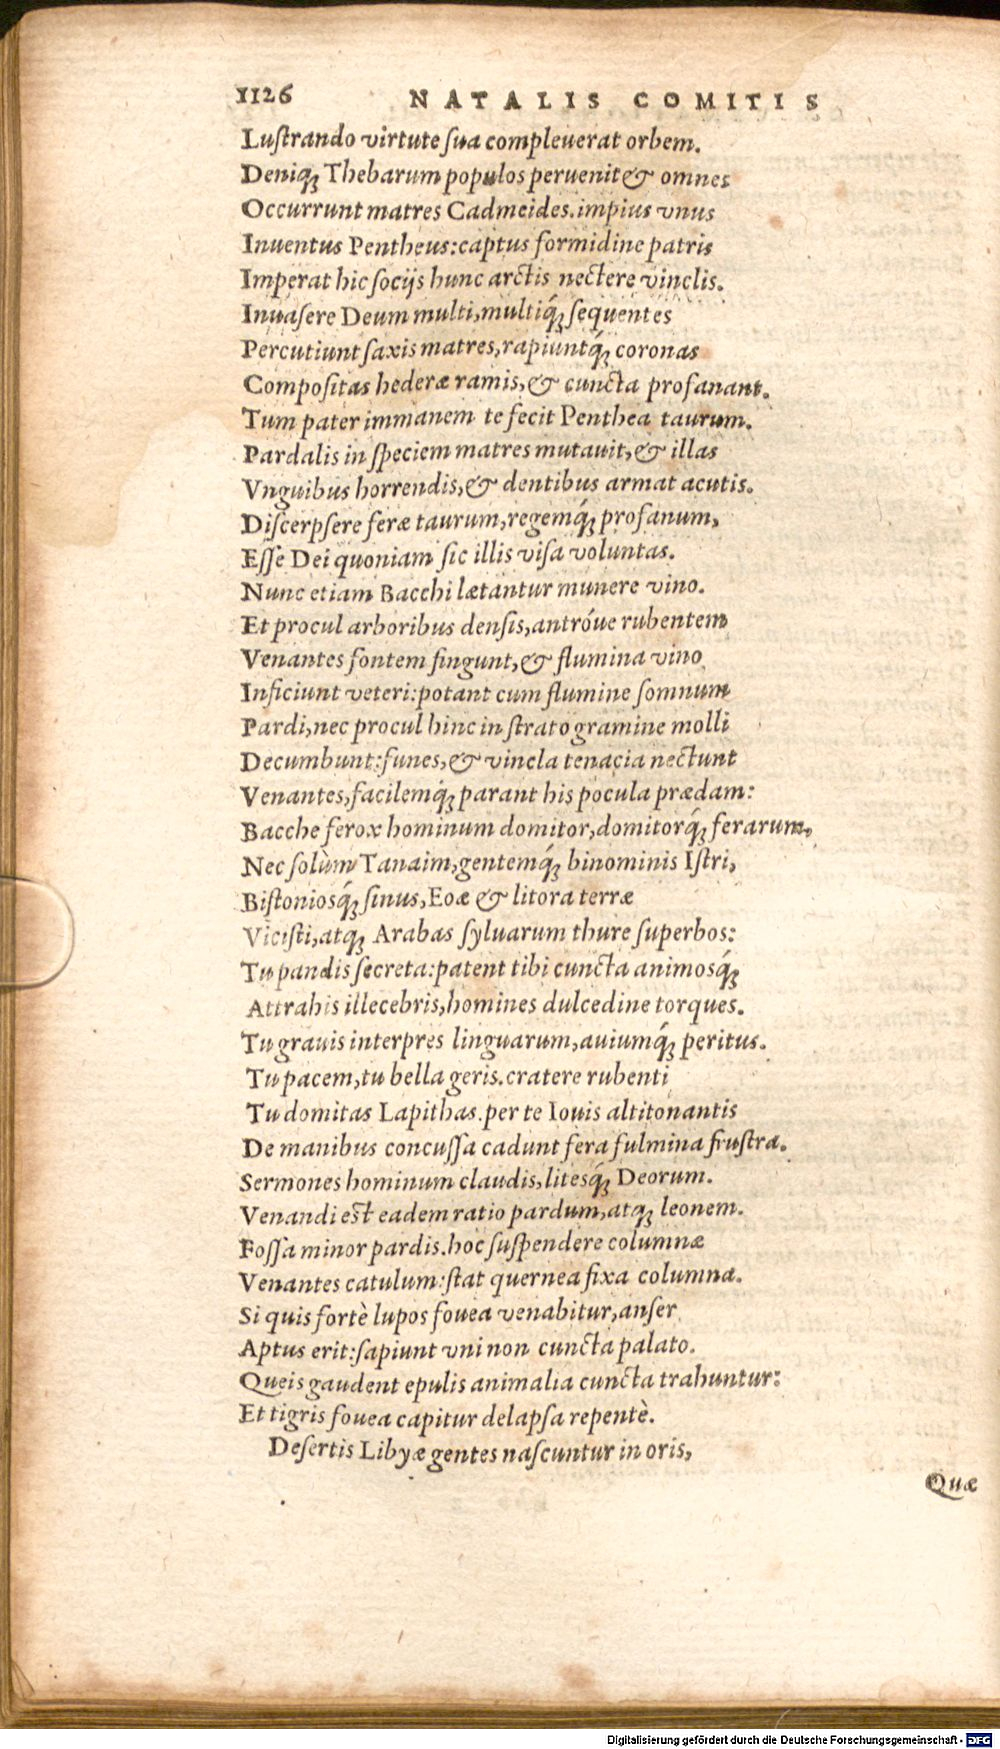 1126 NATALIS COMITIS
Luſtrando virtute ſua compleuerat orbem.
Deniq; Thebarum populos peruenit & omnes
Occurrunt matres Cadmeides. impius vnus
Inuentus Pentheus: captus formidine patris
Imperat hic ſocijs hunc arctis nectere vinclis.
Inuaſere Deum multi, multiq́; ſequentes
Percutiunt ſaxis matres, rapiuntq́; coronas
Compoſitas hederæ ramis, & cuncta profanant.
Tum pater immanem te fecit Penthea taurum.
Pardalis in ſpeciem matres mutauit, & illas
Vnguibus horrendis, & dentibus armat acutis.
Diſcerpſere feræ taurum, regemq́; profanum,
Eſſe Dei quoniam ſic illis viſa voluntas.
Nunc etiam Bacchi lætantur munere vino.
Et procul arboribus denſis, antróue rubentem
Venantes fontem fingunt, & flumina vino
Inficiunt veteri: potant cum flumine ſomnum
Pardi, nec procul hinc in ſtrato gramine molli
Decumbunt: funes, & vincla tenacia nectunt
Venantes, facilemq́; parant his pocula prædam:
Bacche ferox hominum domitor, domitorq́; ferarum,
Nec ſolùm Tanaim, gentemq́; binominis Iſtri,
Biſtonioſq́; ſinus, Eoæ & litora terræ
Viciſti, atq; Arabas ſyluarum thure ſuperbos:
Tu pandis ſecreta: patent tibi cuncta animosq́;
Attrahis illecebris, homines dulcedine torques.
Tu grauis interpres linguarum, auiumq́; peritus.
Tu pacem, tu bella geris. cratere rubenti
Tu domitas Lapithas. per te Iouis altitonantis
De manibus concuſſa cadunt fera fulmina fruſtra.
Sermones hominum claudis, litesq́; Deorum.
Venandi eſt eadem ratio pardum, atq; leonem.
Foſſa minor pardis. hoc ſuſpendere columnæ
Venantes catulum: ſtat quernea fixa columna.
Si quis fortè lupos fouea venabitur, anſer
Aptus erit: ſapiunt vni non cuncta palato.
Queis gaudent epulis animalia cuncta trahuntur:
Et tigris fouea capitur delapſa repentè.
Deſertis Libyæ gentes naſcuntur in oris,
Quæ
Digitalisierung gefördert durch die Deutsche Forschungsgemeinschaft - DFG